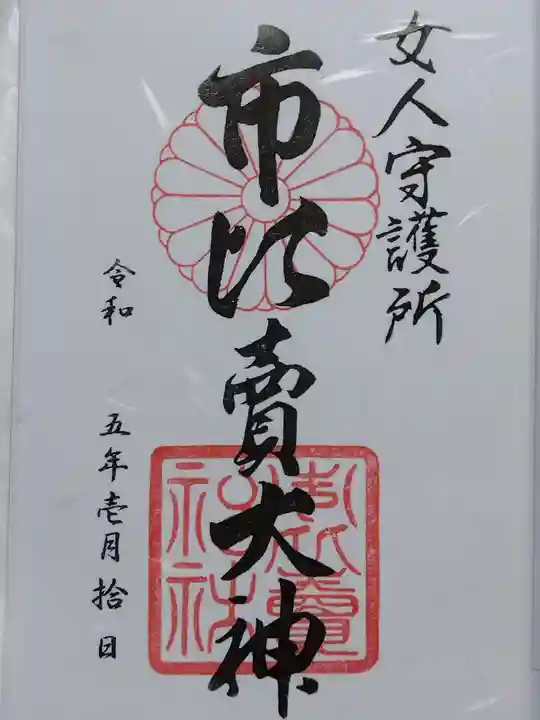 女人守護所
市比賣大神
令和 五年壱月拾日